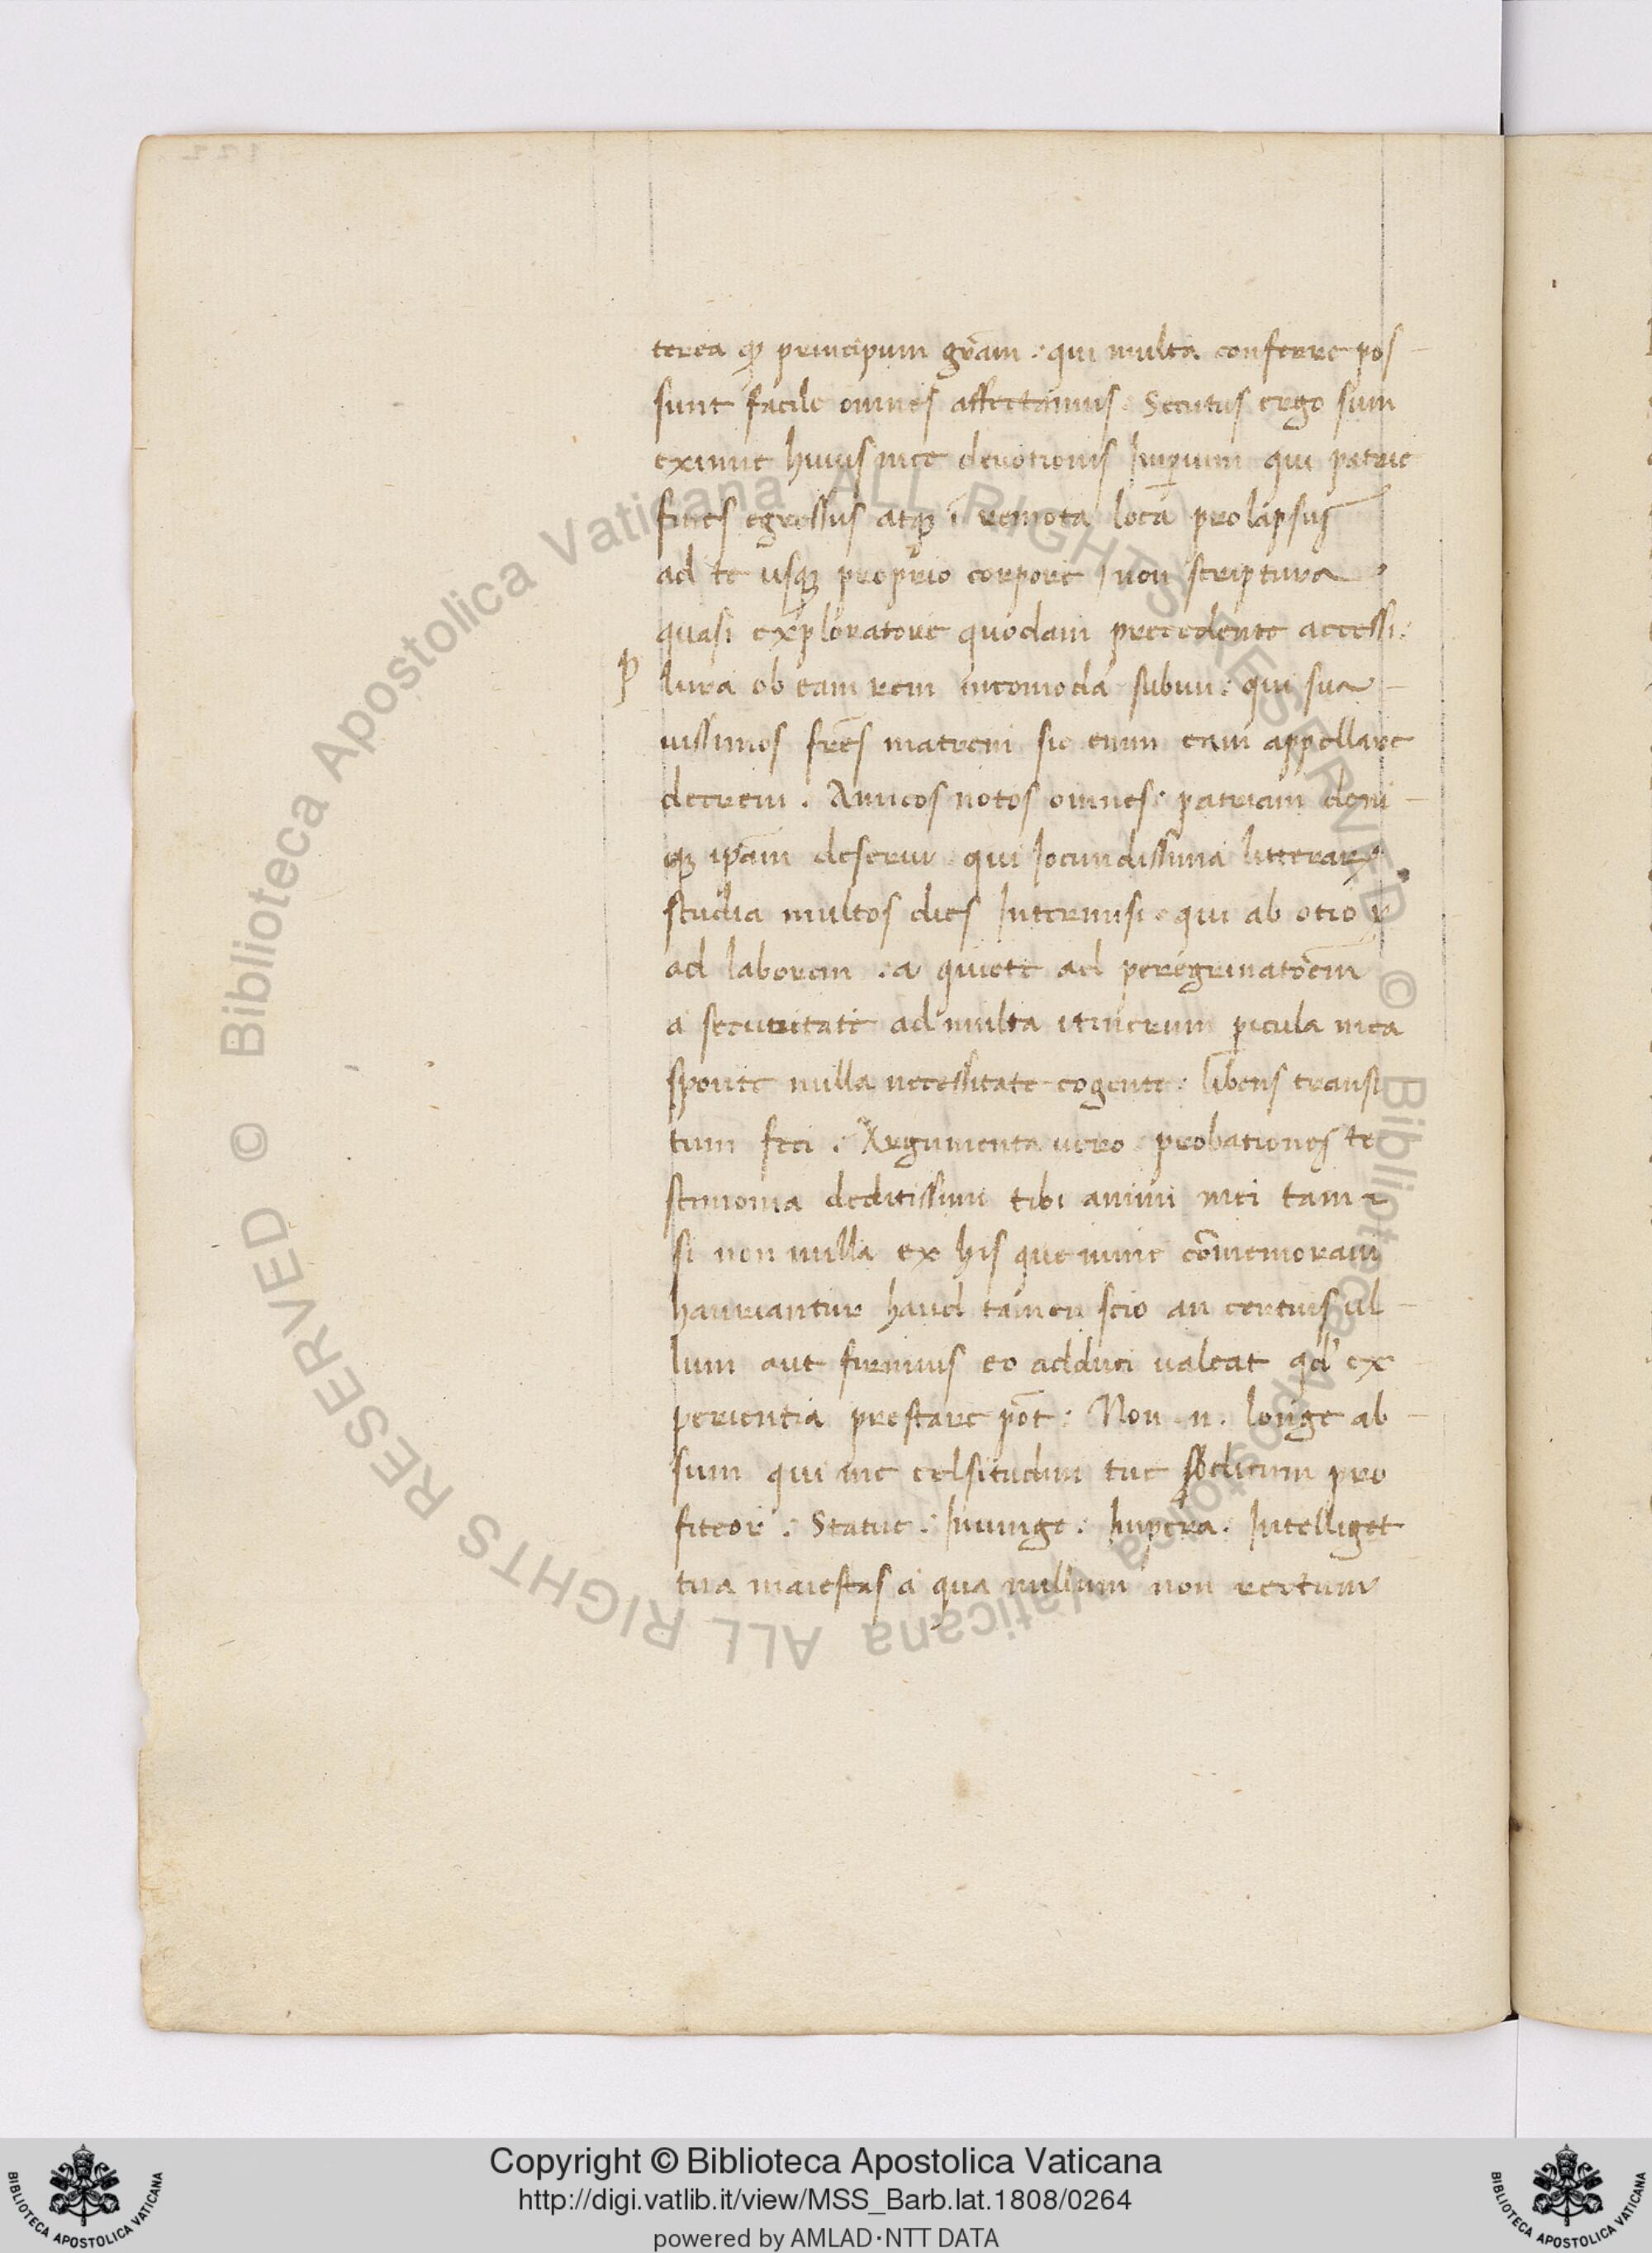 terea qp principum gr̃am : qui multa conferre pos-
sunt facile omnes affectamus. Secutus ergo sum
eximie huius mee deuotionis Imperium qui patrie
fines egressus atq; ĩ remota loca prolapsus
ad te usq; proprio corpore / non scriptura
quasi exploratore quodam precedente accessi :
P lura ob eam rem incomoda subiui : qui sua-
uissimos fr̃es matrem sic enim eam appellare
decreui . Amicos notos omnes : patriam deni-
q; ip̃am deserui qui Iocundissima litterarꝝ
studia multos dies Intermisi . qui ab otio
ad laborem : a quiete ad peregrinatõem
a securitate ad multa itinerum pericula mea
sponte nulla necessitate cogente : libens transi
tum feci . Argumenta uero probationes te
stimonia deditissimi tibi animi mei tam
si non nulla ex his que nunc cõmemoraui
hauriantur haud tamen scio an certius ul-
lum aut firmius eo adduci ualeat qd' ex
perientia prestare põt : Non .n. longe ab-
sum qui me celsitudini tue pro
fiteor . Statue : Iniunge . Impera . Intelliget
tua maiestas a qua nullum non
Copyright © Biblioteca Apostolica Vaticana
http://digi.vatlib.it/view/MSS_Barb.lat.1808/0264
powered by AMLAD·NTT DATA
BIBLIOTECA APOSTOLICA VATICANA
BIBLIOTECA APOSTOLICA VATICANA
© Biblioteca Apostolica Vaticana ALL RIGHTS RESERVED © Biblioteca Apostolica Vaticana ALL RIGHTS RESERVED